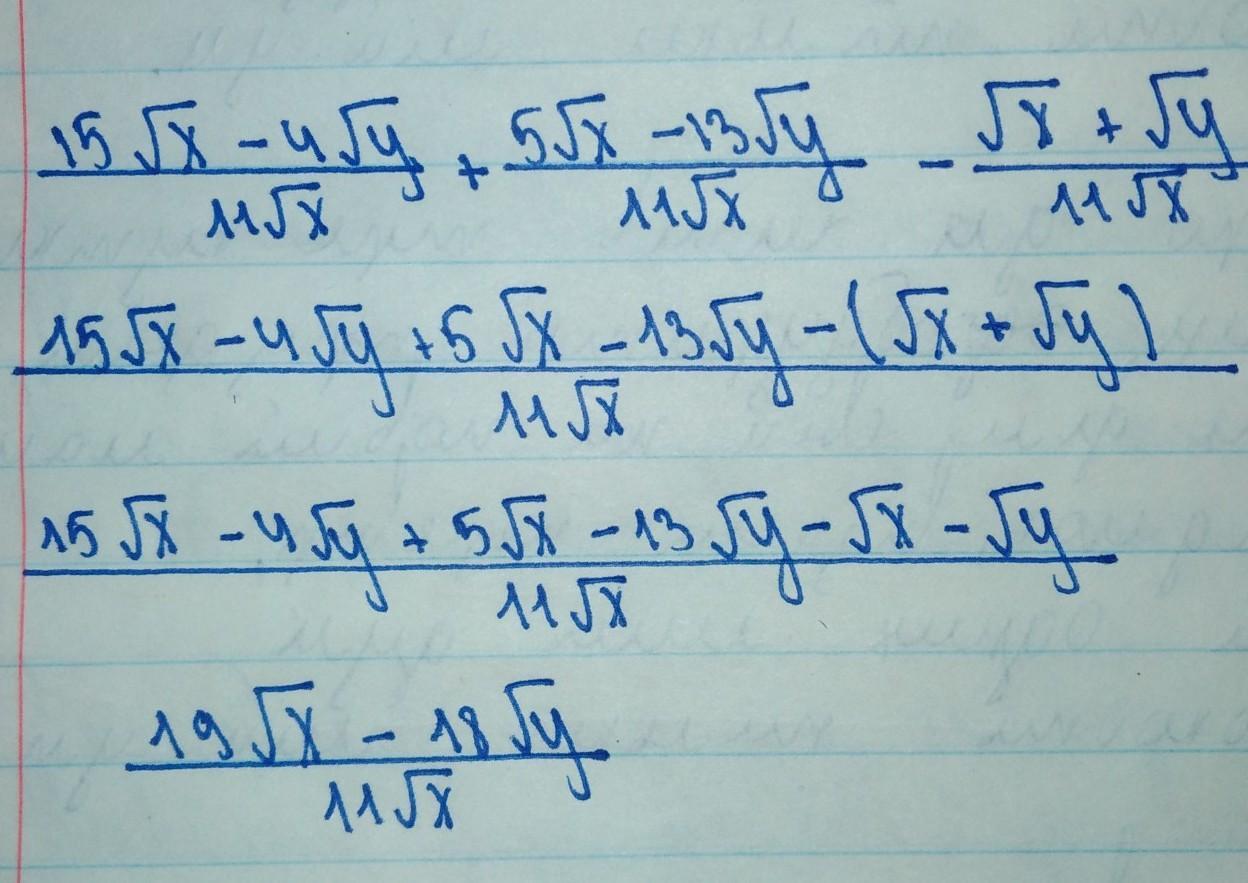 15√x - 4√y / 11√x + 5√x - 13√y / 11√x - √x + √y / 11√x
15√x - 4√y + 5√x - 13√y - (√x + √y) / 11√x
15√x - 4√y + 5√x - 13√y - √x - √y / 11√x
19√x - 18√y / 11√x